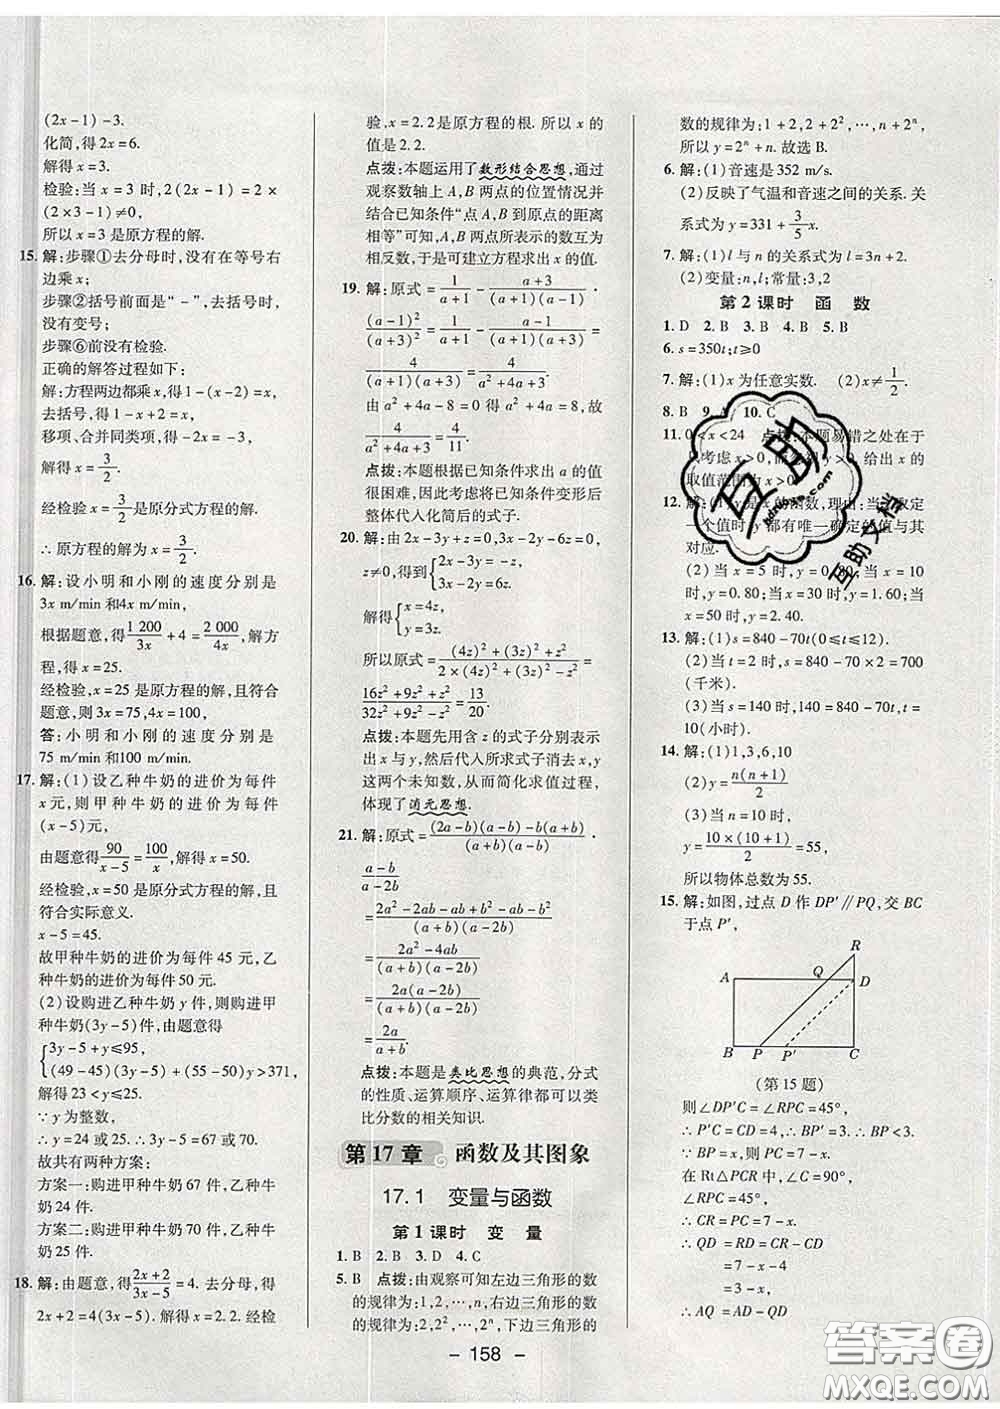 (2x-1)-3.
化简,得2x=6.
解得x=3.
检验:当x=3时,2(2x-1)=2×
(2×3-1)≠0,
所以x=3是原方程的解.
15. 解:步骤①去分母时,没有在等号右
边乘x;
步骤②括号前面是“-”,去括号时,
没有变号;
步骤⑥前没有检验.
正确的解答过程如下:
解:方程两边都乘x,得1-(x-2)=x,
去括号,得1-x+2=x,
移项、合并同类项,得-2x=-3,
解得x=3/2.
经检验,x=3/2是原方程的解,
∴原方程的解为x=3/2.
16. 解:设小明和小刚的速度分别是
3x m/min和4x m/min,
根据题意,得1 200/3x+4=2 000/4x,解方
程,得x=25.
经检验,x=25是原方程的解,且符合
题意,则3x=75,4x=100,
答:小明和小刚的速度分别是
75 m/min和100 m/min.
17. 解:(1)设乙种牛奶的进价为每件
x元,则甲种牛奶的进价为每件
(x-5)元,
由题意得90/(x-5)=100/x,解得x=50.
经检验,x=50是原分式方程的解,且
符合实际意义.
x-5=45.
故甲种牛奶的进价为每件45元,乙
种牛奶的进价为每件50元.
(2)设购进乙种牛奶y件,则购进甲
种牛奶(3y-5)件,由题意得
{3y-5+y≤95,
(49-45)(3y-5)+(55-50)y>371,
解得23<y≤25.
∵y为整数,
∴y=24或25.
故共有两种方案:
方案一:购进甲种牛奶67件,乙种牛
奶24件;
方案二:购进甲种牛奶70件,乙种牛
奶25件.
18. 解:由题意,得(2x+2)/(3x-5)=4.去分母,得
2x+2=4(3x-5).解得x=2.2.经检
验,x=2.2是原方程的根.所以x的
值是2.2.
点拨:本题运用了数形结合思想,通过
观察数轴上A,B两点的位置情况并
结合已知条件“点A,B到原点的距离
相等”可知,A,B两点所表示的数互为
相反数,于是可建立方程求出x的值.
19. 解:原式=1/(a+1)-(a+3)/((a+1)(a-1))·
(a-1)²/((a+1)(a+3))=1/(a+1)-(a-1)/(a+1)²=
4/((a+1)(a+3))=4/(a²+4a+3).
由a²+4a-8=0得a²+4a=8,故
4/(a²+4a+3)=4/11.
点拨:本题根据已知条件求出a的值
很困难,因此考虑将已知条件变形后
整体代入化简后的式子.
20. 解:由2x-3y+z=0,3x-2y-6z=0,
z≠0,得到{2x-3y=-z,
3x-2y=6z.
解得{x=4z,
y=3z.
所以原式=((4z)²+(3z)²+z²)/(2×(4z)²+(3z)²-z²)=
(16z²+9z²+z²)/(32z²+9z²-z²)=13/20.
点拨:本题先用含z的式子分别表示
出x,y,然后代入所求式子消去x,y
这两个未知数,从而简化求值过程,
体现了消元思想.
21. 解:原式=((2a-b)(a-b)-b(a+b))/((a+b)(a-b))·
(a-b)/(a-2b)
=(2a²-2ab-ab+b²-ab-b²)/((a+b)(a-2b))
=(2a²-4ab)/((a+b)(a-2b))
=2a(a-2b)/((a+b)(a-2b))
=2a/(a+b).
点拨:本题是类比思想的典范,分式
的性质、运算顺序、运算律都可以类
比分数的相关知识.
第17章 函数及其图象
17.1 变量与函数
第1课时 变量
1. B 2. B 3. D 4. C
5. B 点拨:由观察可知左边三角形的数
的规律为:1,2,…,n,右边三角形的数
的规律为:2,2²,…,2ⁿ,下边三角形的
数的规律为:1+2,2+2²,…,n+2ⁿ,
所以y=2ⁿ+n.故选B.
6. 解:(1)音速是352 m/s.
(2)反映了气温和音速之间的关系.关
系式为y=331+3/5x.
7. 解:(1)l与n的关系式为l=3n+2.
(2)变量:n,l;常量:3,2
第2课时 函数
1. D 2. B 3. B 4. B 5. B
6. s=350t;t≥0
7. 解:(1)x为任意实数. (2)x≠1/2.
8. B 9. A 10. C
11. 0<x<24 点拨:本题易错之处在于
只考虑x>0,而忽略y>0,给出x的
取值范围为x>0.
12. 解:(1)y是x的函数,理由:当x取定
一个值时,y都有唯一确定的值与其
对应.
(2)当x=5时,y=0.80;当x=
10时,y=0.80;当x=30时,y=1.60;当
x=50时,y=2.40.
13. 解:(1)s=840-70t(0≤t≤12).
(2)当t=2时,s=840-70×2=700
(千米).
(3)当s=140时,140=840-70t,t=
10(小时).
14. 解:(1)1,3,6,10
(2)y=n(n+1)/2
(3)当n=10时,
y=10×(10+1)/2=55,
所以物体总数为55.
15. 解:如图,过点D作DP′∥PQ,交BC
于点P′,
R
A Q D
B P P′ C
(第15题)
则∠DP′C=∠RPC=45°,
∴P′C=CD=4,∠R=45°.
∵BP=x,∴PC=7-x.
在Rt△PCR中,
∵∠RPC=∠R=45°,
∴CR=PC=7-x.
∴QD=RD=CR-CD
=7-x-4
=3-x,
∴AQ=AD-QD
- 158 -
互助
互助文档
答案圈
MXQE.COM